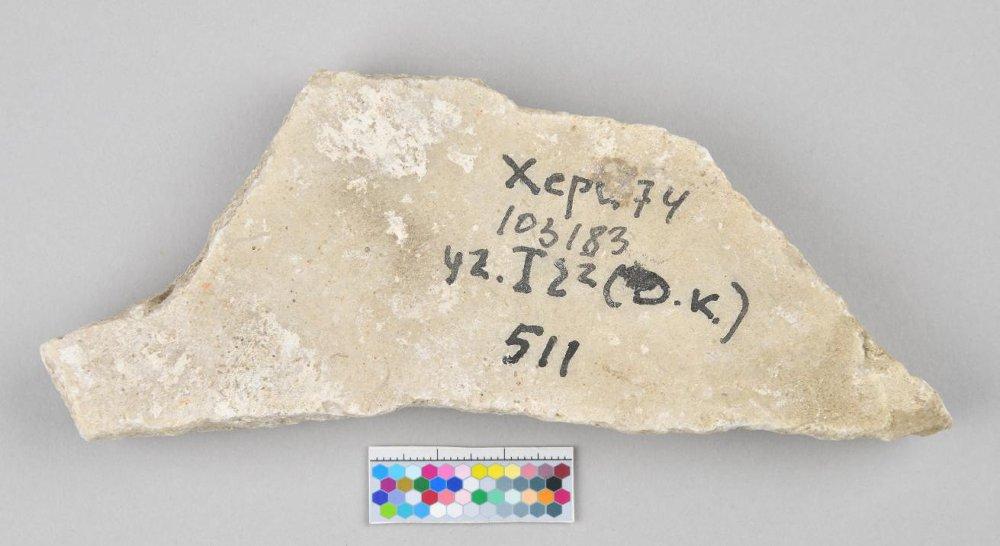 Херс. 74
103183
уг. I 2² (О.к.)
511